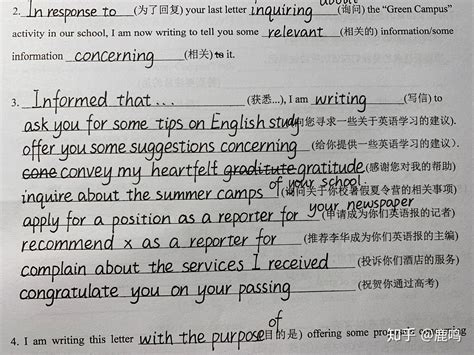 about
2. In response to (为了回复) your last letter inquiring (询问) the "Green Campus"
activity in our school, I am now writing to tell you some relevant (相关的) information/some
information concerning (相关) to it.
3. Informed that... (获悉...), I am writing (写信) to
ask you for some tips on English study (向您寻求一些关于英语学习的建议).
offer you some suggestions concerning (给你提供一些英语学习的建议).
cone convey my heartfelt graditute gratitude (感谢您对我的帮助)
inquire about the summer camps of your school (询问关于你校暑假夏令营的相关事项)
apply for a position as a reporter for your newspaper (申请成为你们英语报的记者)
recommend x as a reporter for (推荐李华成为你们英语报的主编)
complain about the services I received (投诉你们酒店的服务)
congratulate you on your passing (祝贺你通过高考)
4. I am writing this letter with the purpose of (目的是) offering some
知乎 @鹿鸣